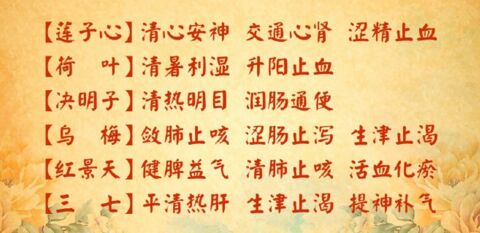 【莲子心】清心安神 交通心肾 涩精止血
【荷 叶】清暑利湿 升阳止血
【决明子】清热明目 润肠通便
【乌 梅】敛肺止咳 涩肠止泻 生津止渴
【红景天】健脾益气 清肺止咳 活血化瘀
【三 七】平清热肝 生津止渴 提神补气